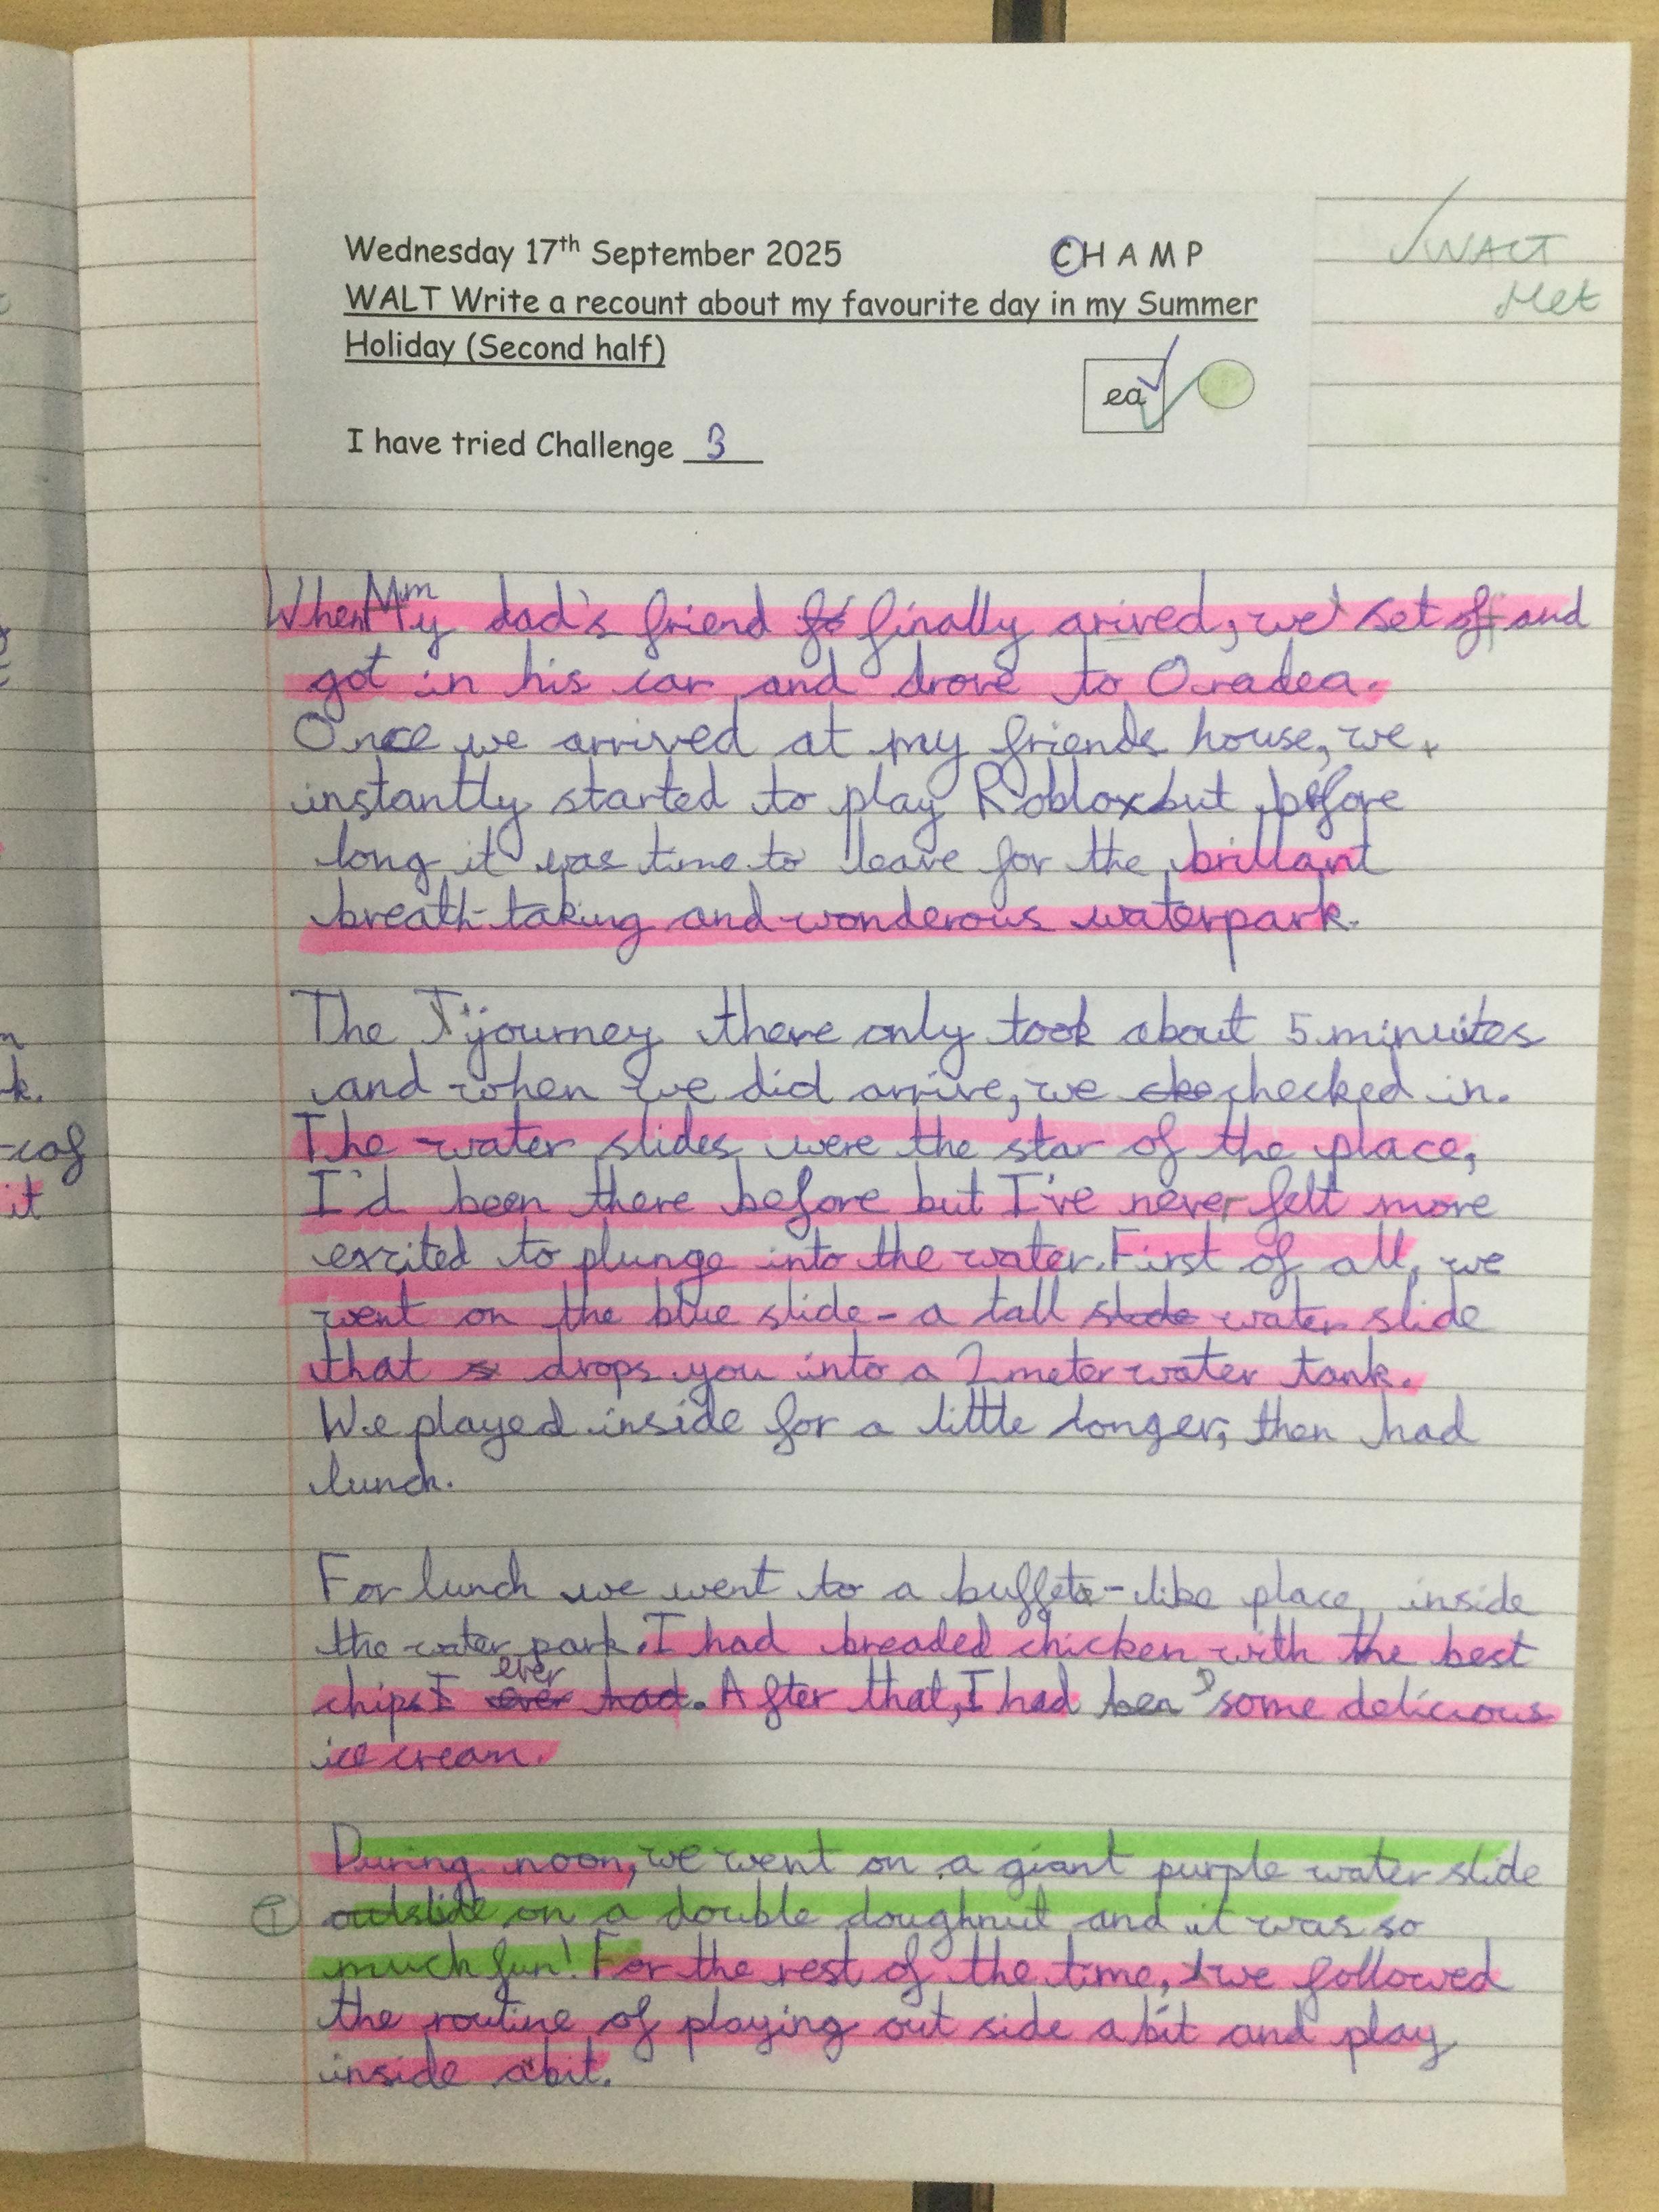 Wednesday 17th September 2025 CHAMP
WALT Write a recount about my favourite day in my Summer
Holiday (Second half)
✓WALT
Met
ea
I have tried Challenge 3
When my dad's friend finally arived, we set off and
got in his car and drove to Oradea.
Once we arrived at my friends house, we
instantly started to play Roblox but before
long it was time to leave for the brillant
breath-taking and wonderous waterpark.
The journey there only took about 5 minuites
and when we did arrive, we checked in.
The water slides were the star of the place,
I'd been there before but I've never felt more
excited to plunge into the water. First of all, we
went on the blue slide - a tall slide water slide
that drops you into a 2 meter water tank.
We played inside for a little longer, then had
lunch.
For lunch we went to a buffet-like place inside
the water park. I had breaded chicken with the best
chips I ever had. After that, I had some delicious
ice cream.
During noon, we went on a giant purple water slide
① outslide on a double doughnut and it was so
much fun! For the rest of the time, we followed
the routine of playing out side a bit and play
inside a bit.
n
k.
it